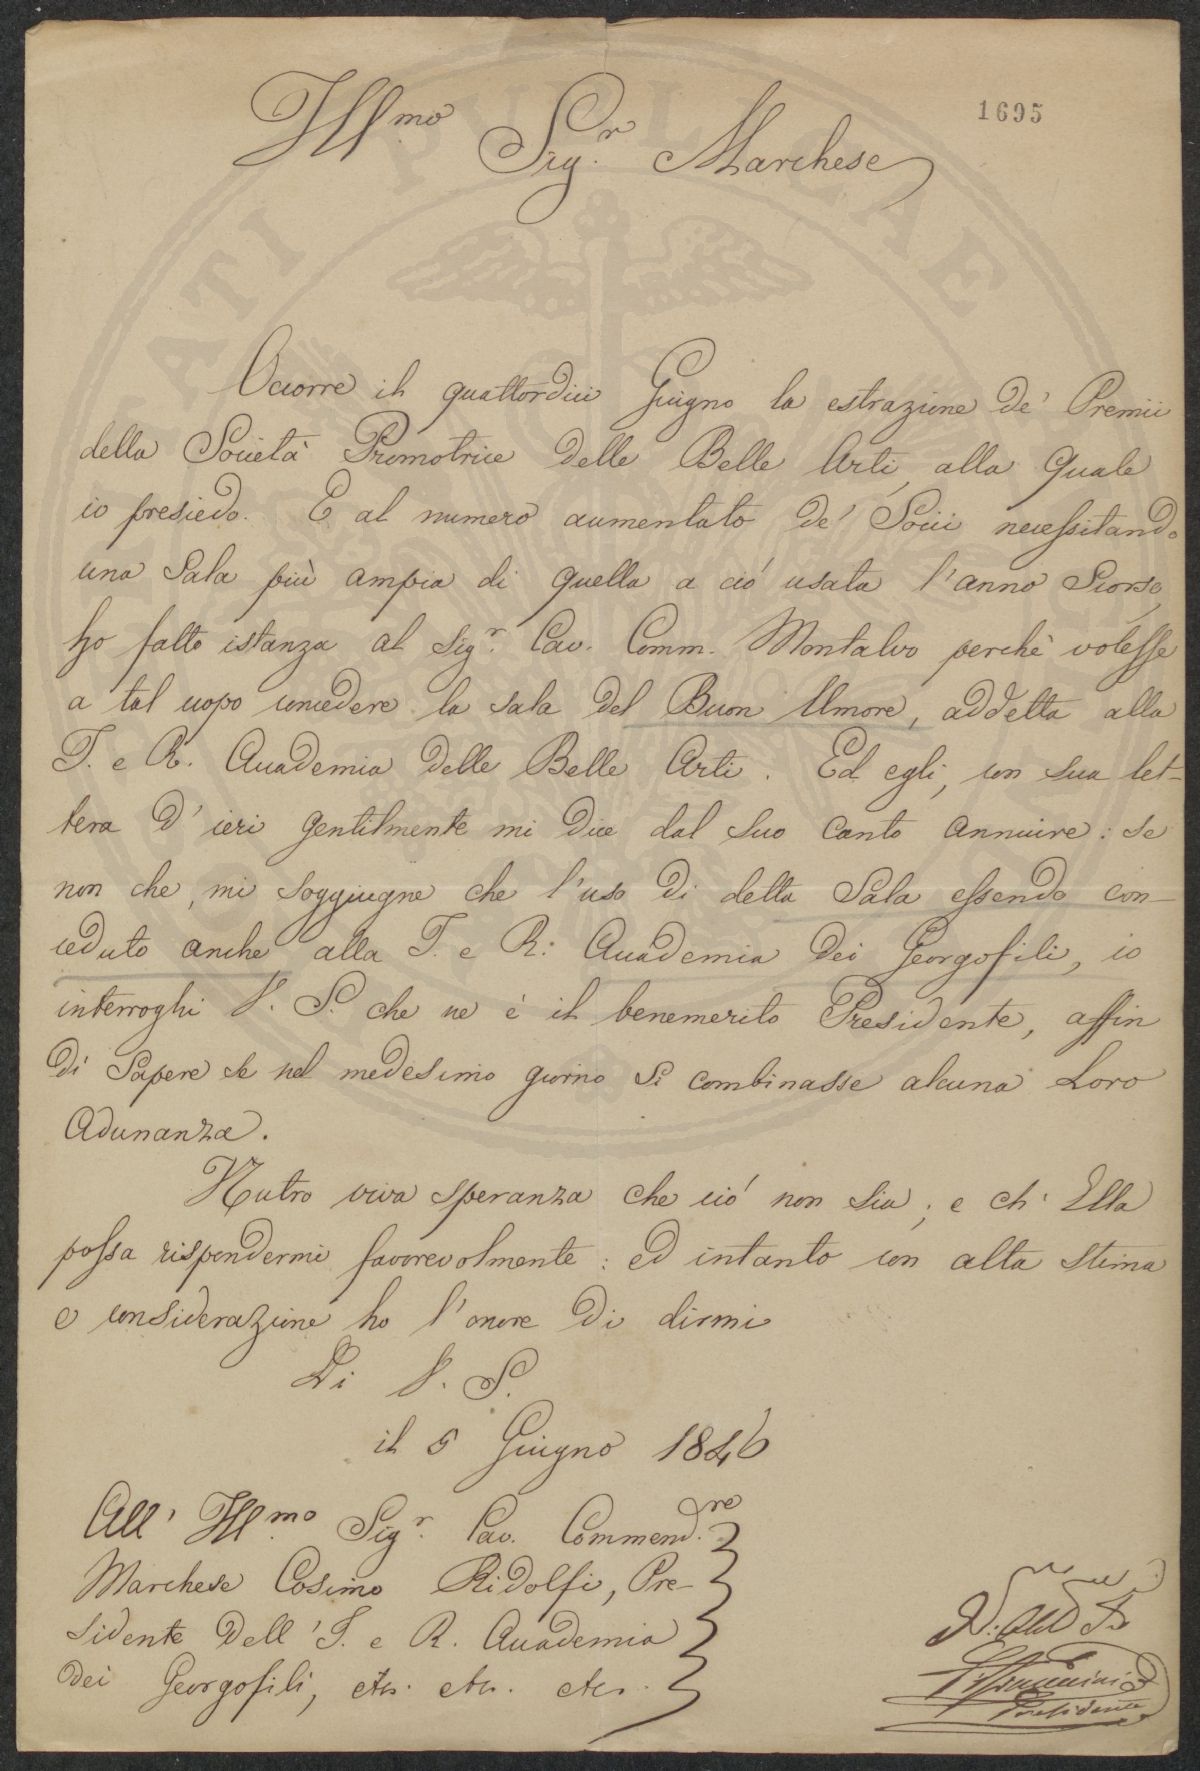 1695
Ill.mo Sig.r Marchese
Occorre il quattordici Giugno la estrazione de' Premii
della Società Promotrice delle Belle Arti, alla quale
io presiedo. E al numero aumentato de' Socii necessitando
una Sala più ampia di quella a ciò usata l'anno Scorso,
ho fatto istanza al Sig.r Cav. Comm. Montalvo perchè volesse
a tal uopo concedere la sala del Buon Umore, addetta alla
I. e R. Accademia delle Belle Arti. Ed egli, con sua let-
tera d'ieri gentilmente mi dice dal suo canto annuire: se
non che, mi soggiugne che l'uso di detta Sala essendo con-
ceduto anche alla I. e R. Accademia dei Georgofili, io
interroghi V. S. che ne è il benemerito Presidente, affin
di Sapere se nel medesimo giorno si combinasse alcuna Loro
Adunanza.
Nutro viva speranza che ciò non sia; e ch' Ella
possa rispondermi favorevolmente: ed intanto con alta stima
e considerazione ho l'onore di dirmi
Di V. S.
il 5 Giugno 1846
All' Ill.mo Sig.r Cav. Commend.re
Marchese Cosimo Ridolfi, Pre-
sidente dell' I. e R. Accademia
dei Georgofili, etc. etc. etc.
Presidente